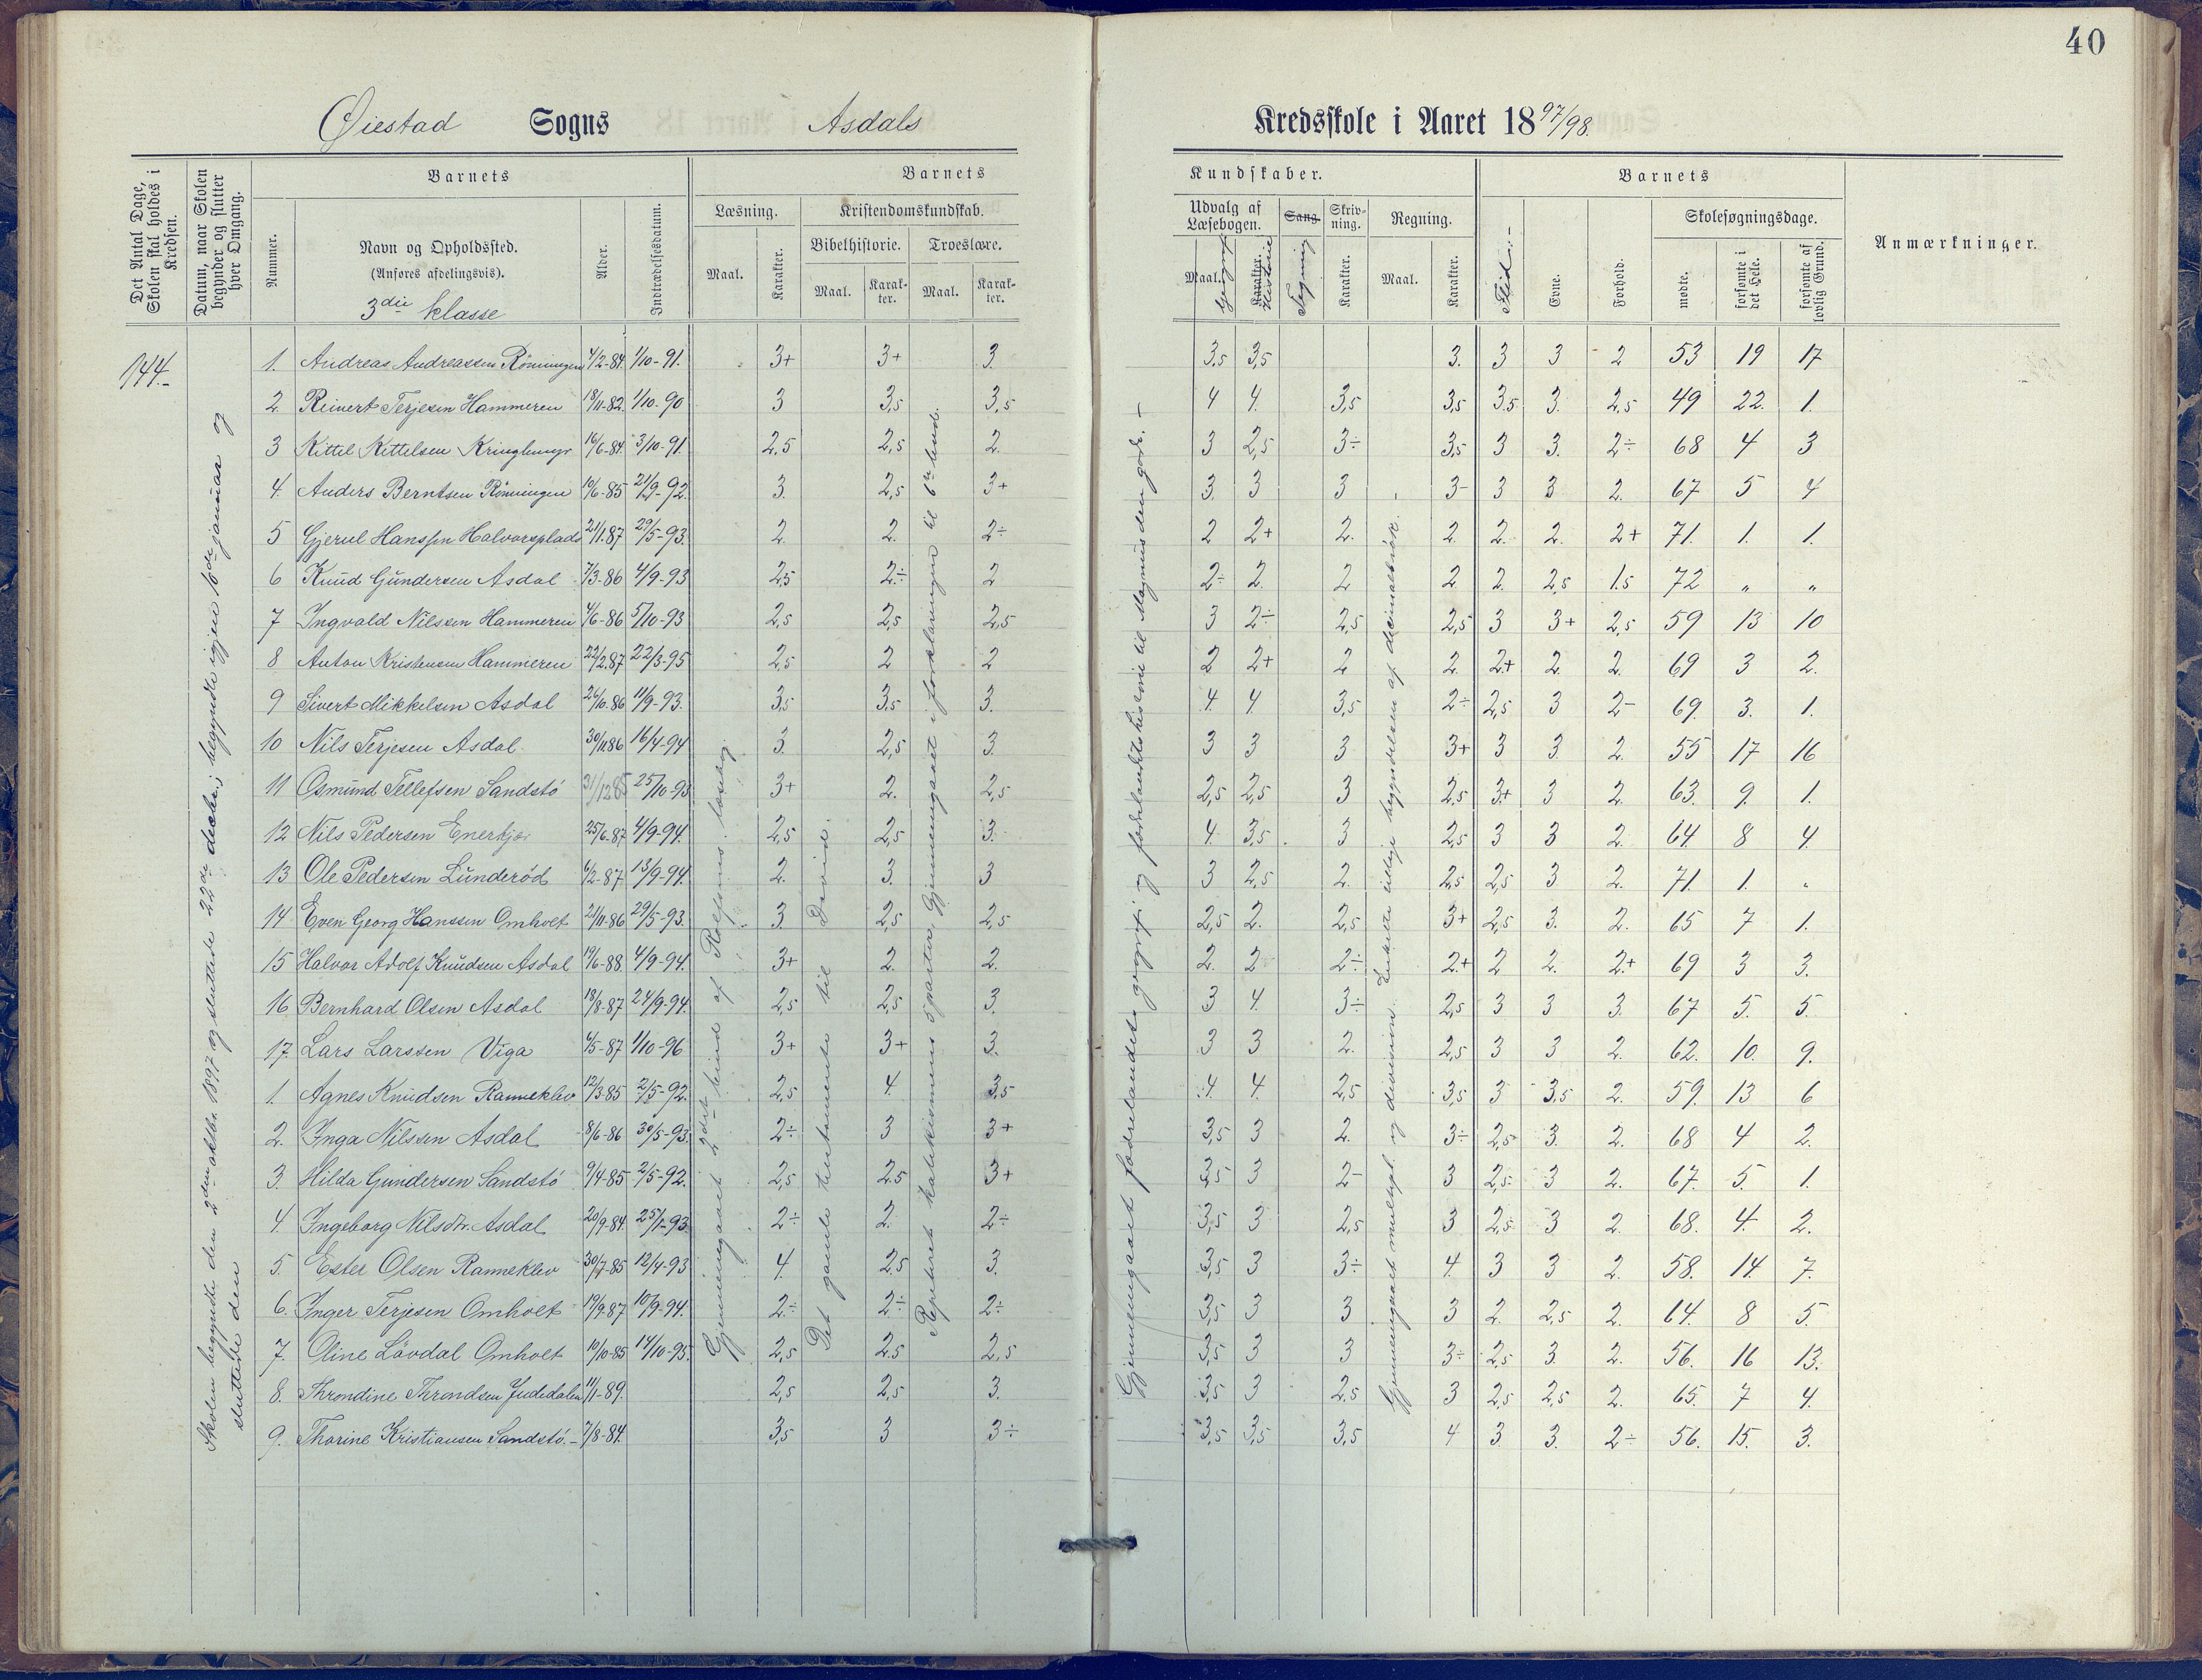 40
Øiestad Sogns Asdals Kredsskole i Aaret 1897/98.
Det Antal Dage, Skolen skal holdes i Kredsen.
Datum, naar Skolen begynder og slutter hver Omgang.
Barnets
Nummer.
Navn og Opholdssted.
(Anføres afdelingsvis).
3die klasse
Alder.
Indtrædelsesdatum.
Barnets Kundskaber.
Læsning.
Maal.
Karakter.
Kristendomskundskab.
Bibelhistorie.
Maal.
Karakter.
Troeslære.
Maal.
Karakter.
Udvalg af Læsebogen.
Maal. Geograf
Karakter. Historie
Sang. Tegning
Skrivning.
Karakter.
Regning.
Maal.
Karakter.
Barnets
Flid.-
Evne.
Forhold.
Skolesøgningsdage.
mødte.
forsømte i det Hele.
forsømte af lovlig Grund.
Anmærkninger.
144.-
Skolen begyndte den 2den oktbr. 1897 og sluttede 22de decbr.; begyndte igjen 10de januar og
sluttede den
Gjennemgaaet 2det bind af Rolfsens læsebog.
Det gamle testamente til David.
Repeteret katekismens 5 parter, gjennemgaaet i forklaringen til 6te bud.
Gjennemgaaet fædrelandets geografi og fædrelandshistorie til Magnus den gode. -
Gjennemgaaet multipl. og division. Enkelte tillige begyndelsen af decimalbrøk.
1. Andreas Andreassen Rönningen 4/2-84. 1/10-91. 3+ 3+ 3. 3,5 3,5 3. 3 3 2 53 19 17
2. Reinert Terjesen Hammeren 18/11-82. 1/10-90 3 3,5 3,5 4 4. 3,5 3,5 3.5 3. 2,5 49 22. 1.
3 Kittel Kittelsen Kringlemyr 16/6-84. 3/10-91. 2.5 2,5 2. 3 2,5 3÷ 3,5 3 3. 2÷ 68 4 3
4. Anders Berntsen Rönningen 10/6-85 21/9-92. 3. 2,5 3+ 3. 3 3 3- 3 3 2. 67 5 4
5 Gjerul Hanssen Halvorsplads 21/1.87 29/5-93. 2. 2. 2÷ 2 2+ 2. 2. 2. 2. 2+ 71. 1. 1.
6 Knud Gundersen Asdal 7/3-86 4/9-93 2,5 2÷ 2 2÷ 2. 2 2 2. 2,5 1.5 72 " "
7 Ingvald Nilssen Hammeren 4/6-86 5/10-93 2,5 2,5 2,5 3 2÷ 2,5 2,5 3 3+ 2,5 59 13 10
8 Anton Kristensen Hammeren 22/2.87 22/3-95 2,5 2 2 2 2+ 2 2. 2+ 2. 2. 69 3 2.
9 Sivert Mikkelsen Asdal 26/10.86 11/9-93. 3,5 3,5 3. 4. 4. 3,5 2÷ 2,5 3 2- 69. 3. 1.
10 Nils Terjesen Asdal 30/11.86 16/4-94 3. 2,5 3. 3 3 3 3+ 3 3. 2. 55 17 16
11 Osmund Tellefsen Sandstö 31/12.85 25/10-93 3+ 2. 2,5 2,5 2,5 3 2,5 3+ 3 2. 63. 9. 1.
12 Nils Pedersen Enerkjær 25/6.87 4/9-94. 2,5 2,5 3. 4. 3,5 3 2,5 3 3 2. 64 8 4.
13 Ole Pedersen Lunderöd 6/2-87 13/9-94. 2. 3. 3 3 2,5 2. 2,5 2,5 3 2. 71. 1. "
14 Even Georg Hanssen Omholt 21/11-86 29/5-93. 3. 2,5 2,5 2,5 2. 2,5 3+ 2,5 3. 2. 65 7 1.
15 Halvor Adolf Knudsen Asdal 19/6-88. 4/9-94. 3+ 2. 2. 2. 2 2÷ 2+ 2 2. 2.+ 69 3 3.
16 Bernhard Olsen Asdal 18/8-87 24/9-94. 2,5 2,5 3. 3 4. 3÷ 2,5 3 3 3. 67 5. 5.
17. Lars Larssen Viga 6/5-87 1/10-96 3+ 3+ 3. 3 3 2. 2,5 3 3 2. 62. 10. 9.
1. Agnes Knudsen Ranneklev 12/3.85 2/5-92. 2,5 4. 3,5 4 4. 2,5 3,5 3 3,5 2. 59. 13 6
2. Inga Nilssen Asdal 8/6-86 30/5-93. 2÷ 3 3+ 3,5 3 2. 3÷ 2,5 3. 2. 68 4 2.
3. Hilda Gundersen Sandstö 9/4-85 2/5-92. 2,5 2.5 3+ 3,5 3 2- 3 2,5 3 2. 67. 5. 1.
4. Ingeborg Nilsdtr. Asdal 20/9-84. 25/1-93. 2÷ 2. 2÷ 3,5 3 2,5 3 2,5 3 2. 68. 4. 2.
5. Ester Olsen Ranneklev 30/7-85 12/4-93 4. 2.5 3. 3,5 3 3÷ 4. 3 3 2. 58. 14. 7.
6. Inger Terjesen Omholt 19/9-87 10/9-94. 2÷ 2÷ 2÷ 3,5 3 3 3 2. 2,5 2. 14. 8 5.
7. Oline Lövdal Omholt 10/10-85 14/10-95. 2,5 2.5 2,5 3,5 3 3 3÷ 2,5 3. 2. 56. 16 13.
8. Throndine Throndsen Judedalen 11/1-89. 2,5 2,5 3. 3,5 3 2,5 3 2,5 2,5 2. 65. 7 4.
9. Thorine Kristiansen Sandstö.- 7/8-84. 3,5 3 3÷ 3,5 3,5 3,5 4 3. 3. 2÷ 56. 15. 3.